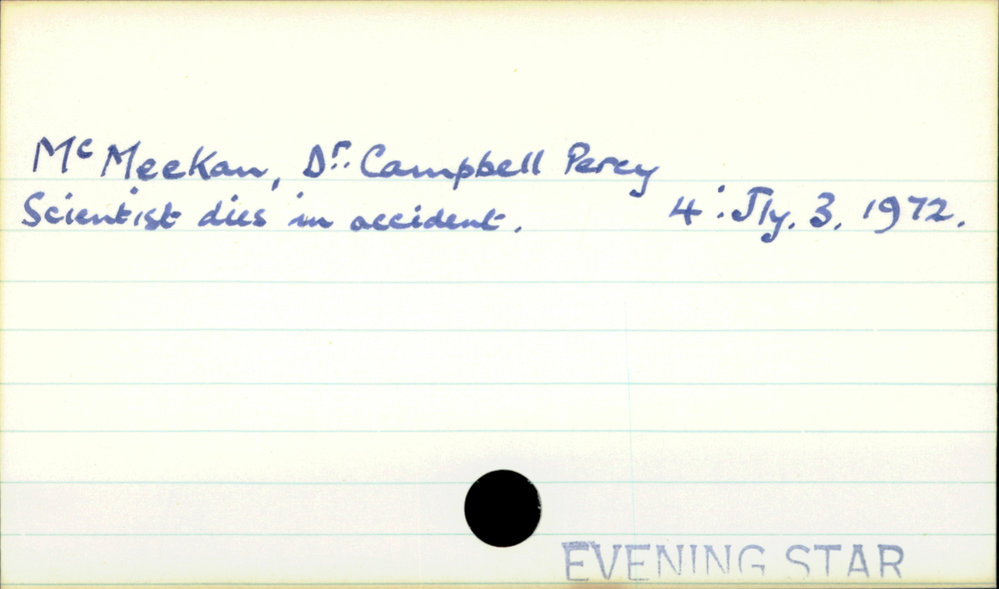 Mc Meekan, Dr. Campbell Percy
Scientist dies in accident. 4: Jly. 3. 1972.
EVENING STAR